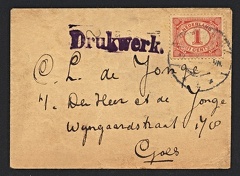 Drukwerk.
NEDERLAND
1
CENT
C. L. de Jonge
Den Heer et de Jonge
Wijngaardstraat
Goes